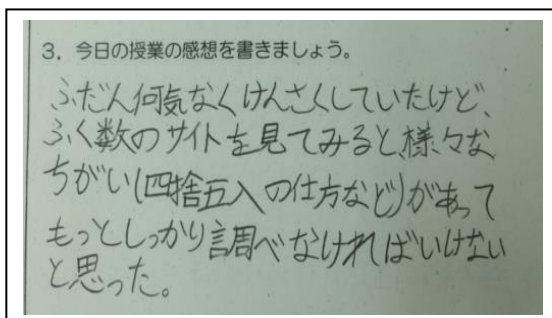 3．今日の授業の感想を書きましょう。
ふだん何気なくけんさくしていたけど、
ふく数のサイトを見てみると、様々な
ちがい(四捨五入の仕方など)があって
もっとしっかり調べなければいけない
と思った。